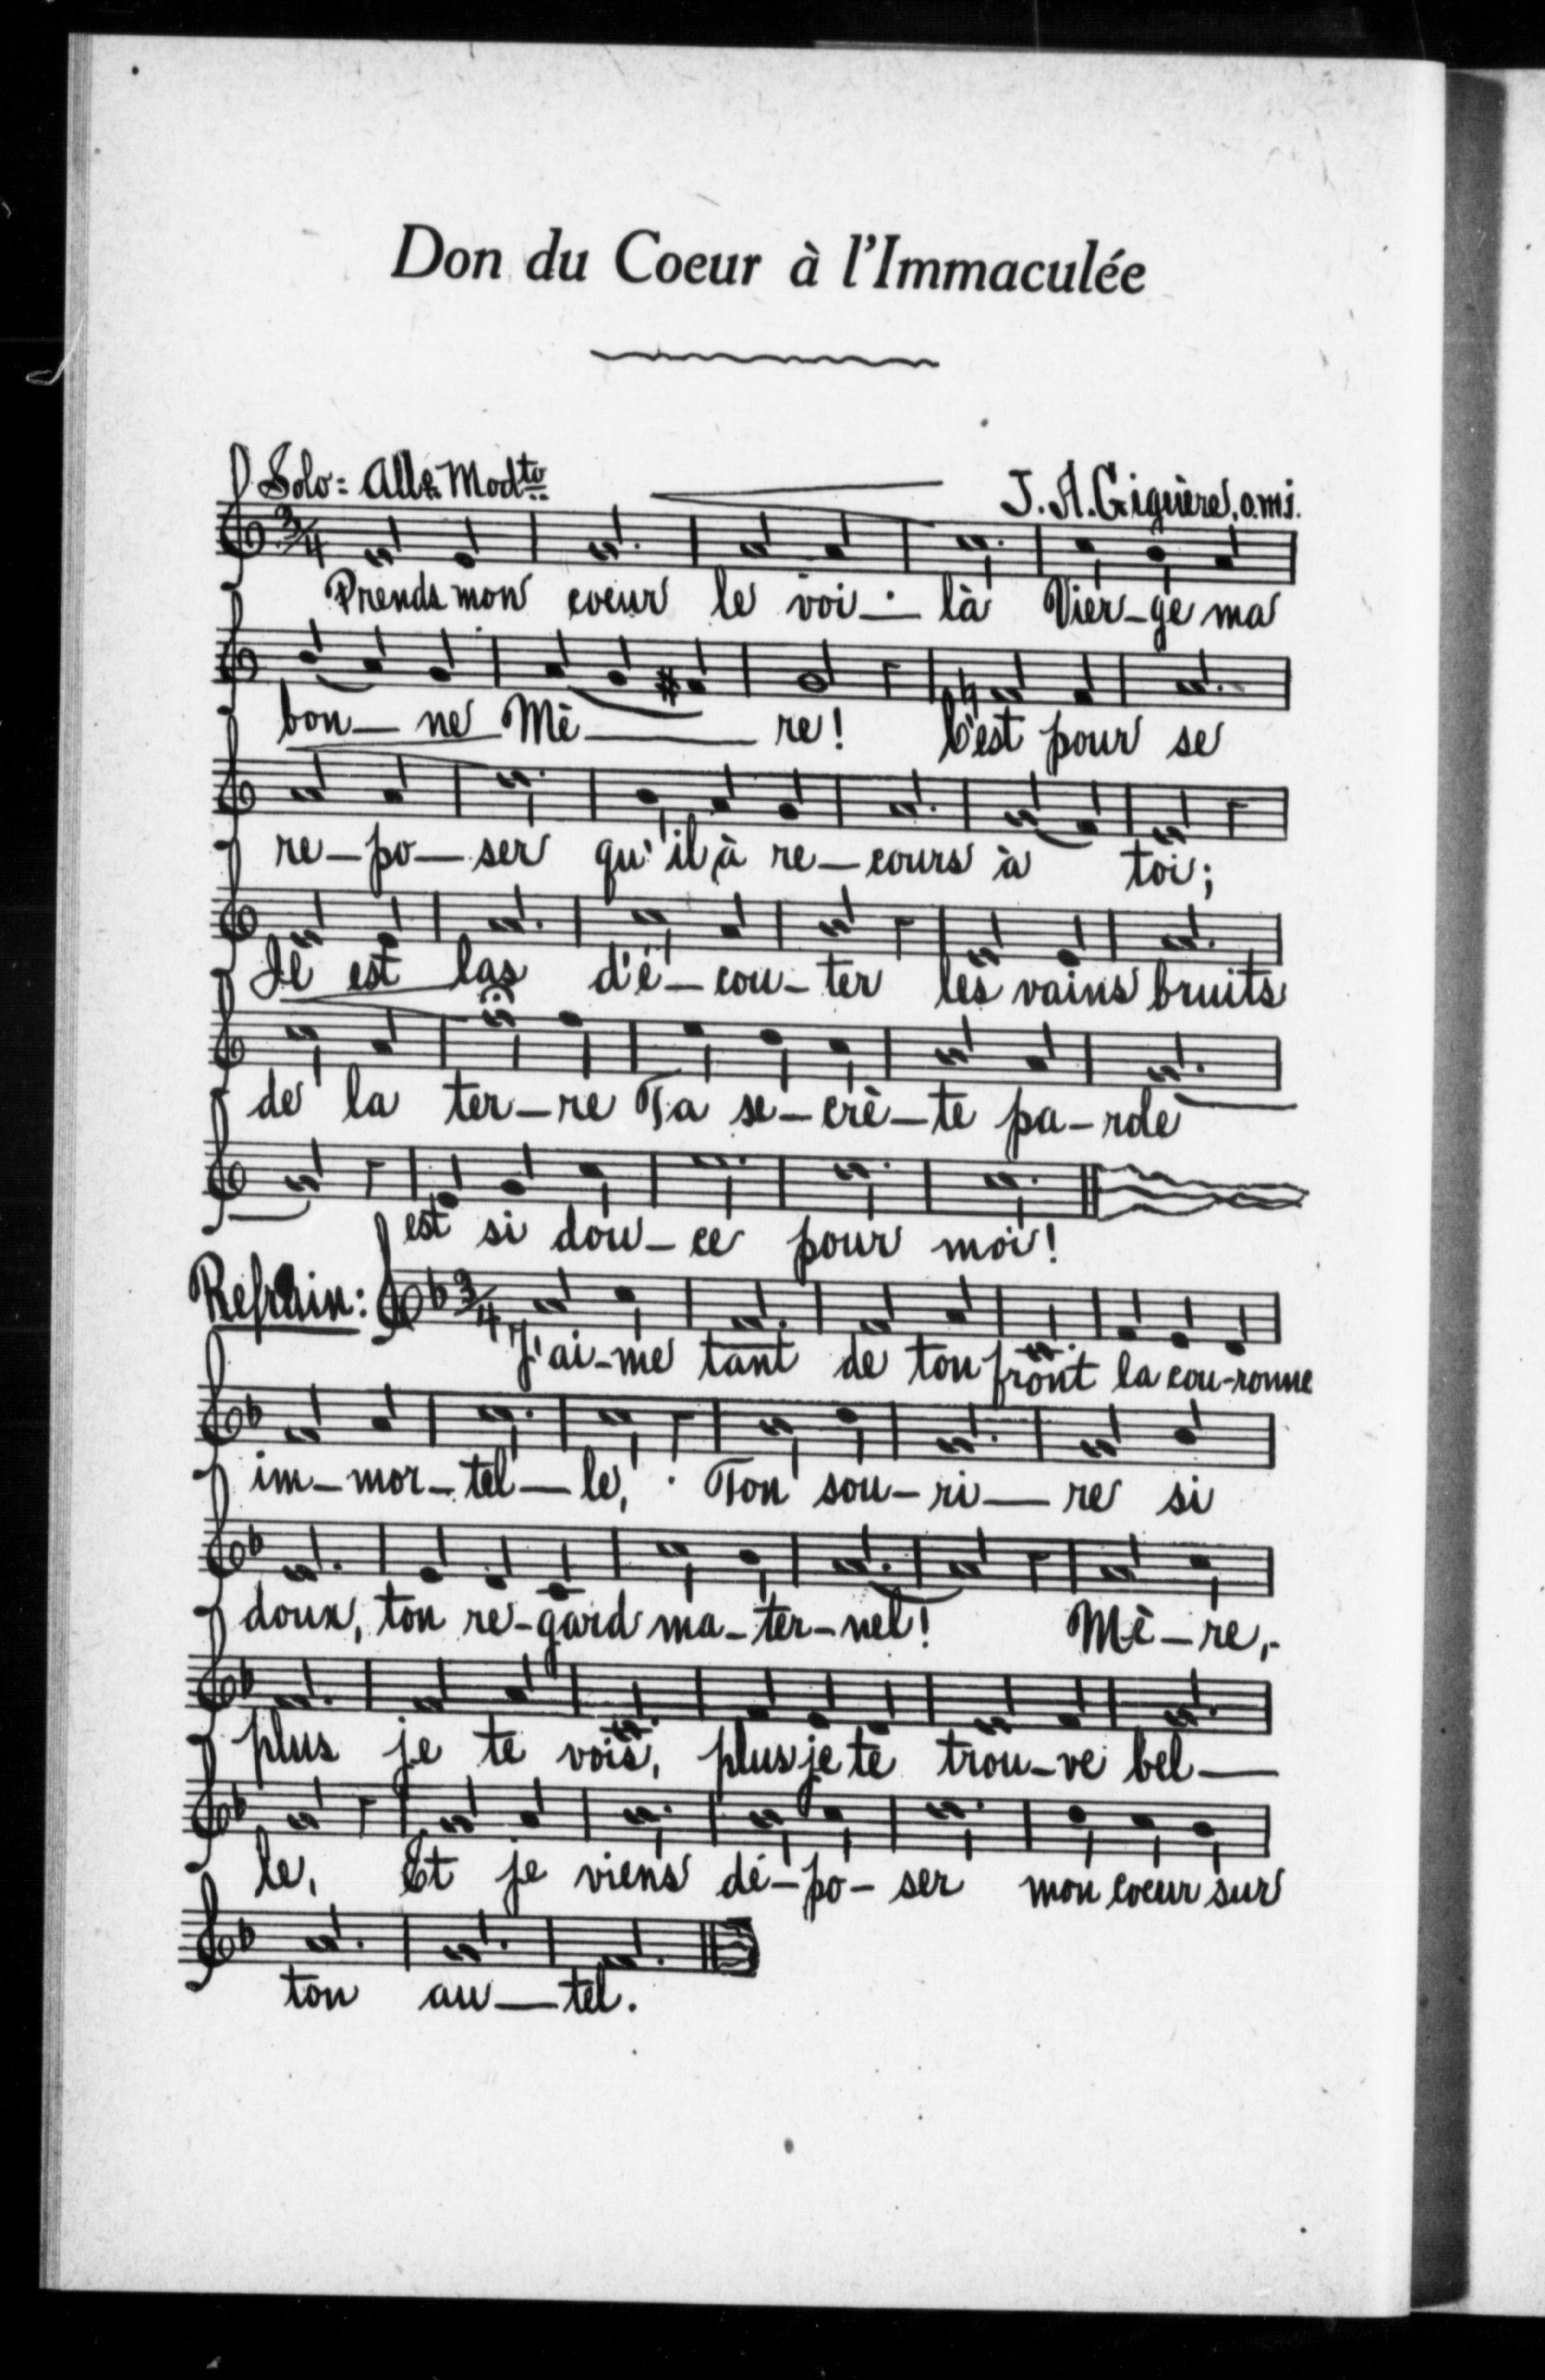 Don du Coeur à l'Immaculée
Solo: All° Modto
J. A. Giguère, o.m.i.
Prends mon coeur le voi-là Vier-ge ma
bon-ne Mè-re! C'est pour se
re-po-ser qu'il à re-cours à toi;
Il est las d'é-cou-ter les vains bruits
de la ter-re Ta se-crè-te pa-role
est si dou-ce pour moi!
Refrain:
J'ai-me tant de ton front la cou-ronne
im-mor-tel-le, Ton sou-ri-re si
doux, ton re-gard ma-ter-nel! Mè-re,
plus je te vois, plus je te trou-ve bel-
le, Et je viens dé-po-ser mon coeur sur
ton au-tel.